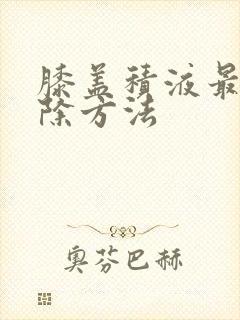 膝盖积液最
除方法
奥芬巴赫